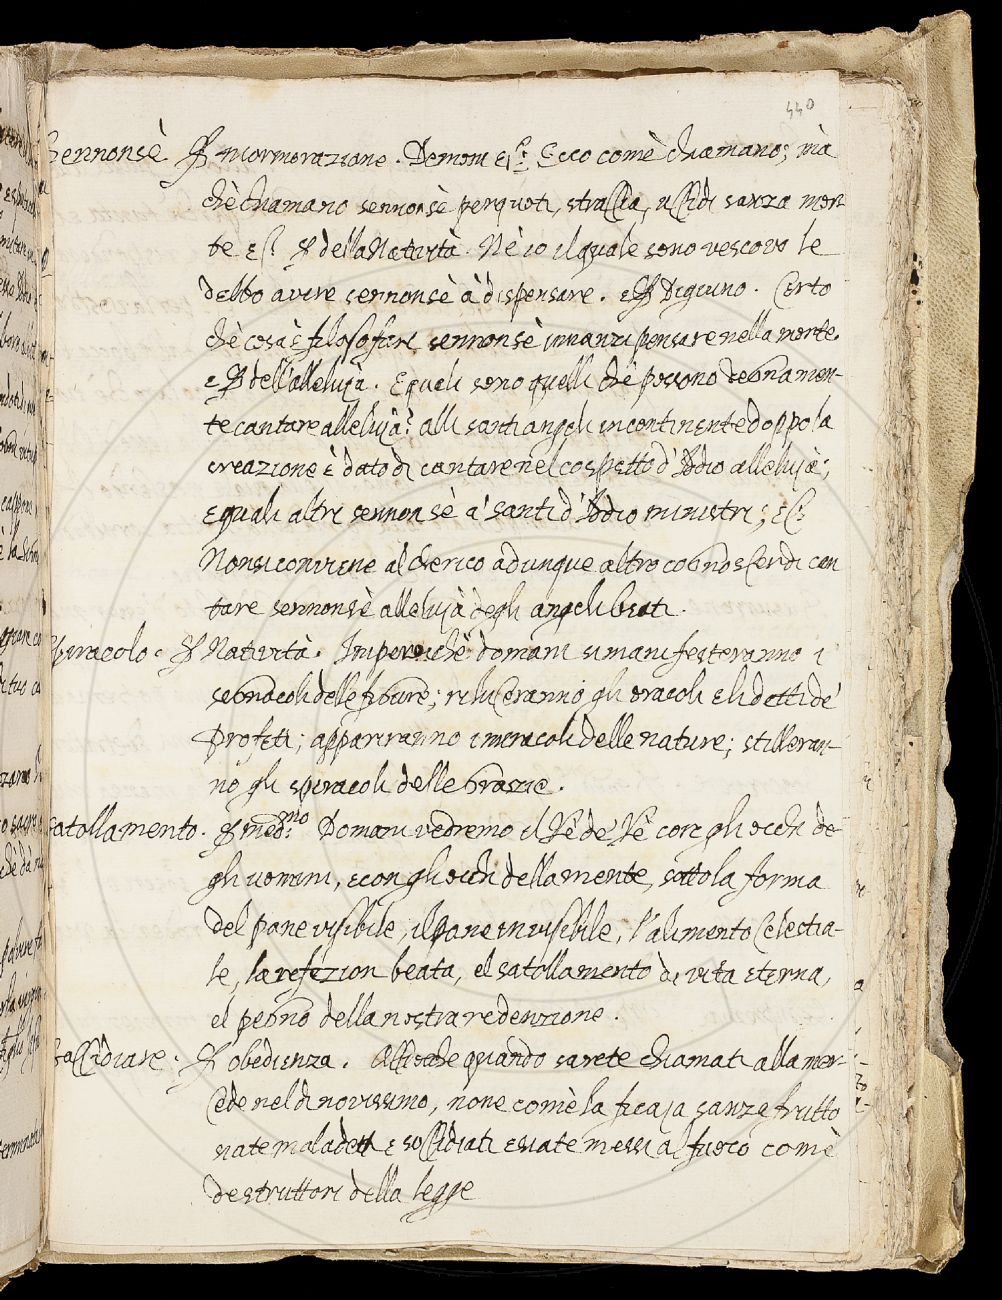 440
Sennonsè. Mormorazione. Demoni Ecco comè chiamano; mà
chè chiamano sennonsè perquoti, straccia, uccidi sanza mor-
te della Natività. Nè io il quale sono vescovo le
debbo avere sennonsè à dispensare. Digiuno. Certo
chè cosa è filosofari sennonsè innanzi pensare nella morte.
e dell'alleluja. E quali sono quelli chè possono degnamen-
te cantare alleluja? alli santi angeli incontinente doppo la
creazione è dato di cantare nel cospetto d'Iddio alleluja;
e quali altri sennonsè a' santi d'Iddio ministri;
Non si conviene al cherico adunque altro cognoscer di can
tare sennonsè alleluja degli angeli beati.
Spiracolo. Natività. Imperochè domani si manifesteranno i
segnacoli delle figure; riluceranno gli oracoli e li detti de'
Profeti; appariranno i miracoli delle nature; stilleran-
no gli spiracoli delle grazie.
Satollamento. med.mo Domani vedremo il Rè de' Rè con gli occhi de-
gli uomini, e con gli occhi della mente, sotto la forma
del pane visibile, il pane invisibile, l'alimento Celestia-
le, la refezion beata, el satollamento di vita eterna,
el pegno della nostra redenzione.
obedienza. Acciochè quando sarete chiamati alla mer-
cede nel dì novissimo, none comè la ficaja sanza frutto
siate maladetti e soccidiati e siate messi al fuoco comè
destruttori della legge